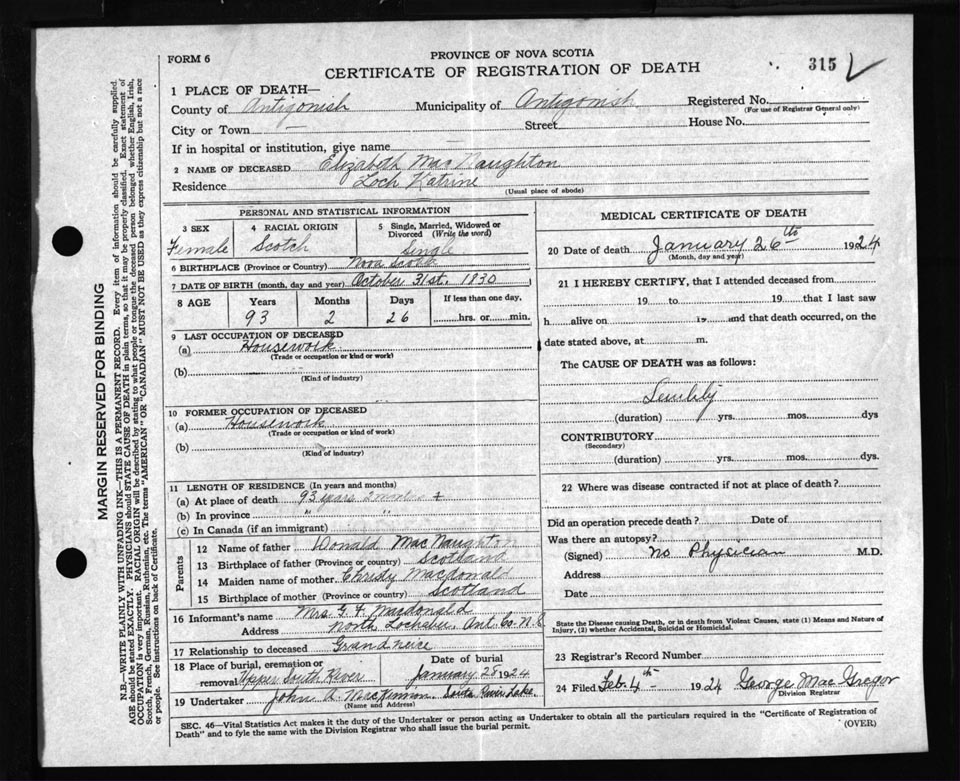 FORM 6
PROVINCE OF NOVA SCOTIA
CERTIFICATE OF REGISTRATION OF DEATH
315
1 PLACE OF DEATH—
County of Antigonish Municipality of Antigonish Registered No.
(For use of Registrar General only)
City or Town — Street House No.
If in hospital or institution, give name
2 NAME OF DECEASED Elizabeth MacNaughton
Residence Loch Katrine
(Usual place of abode)
PERSONAL AND STATISTICAL INFORMATION
3 SEX
Female
4 RACIAL ORIGIN
Scotch
5 Single, Married, Widowed or
Divorced (Write the word)
Single
6 BIRTHPLACE (Province or Country) Nova Scotia
7 DATE OF BIRTH (month, day and year) October 31st. 1830
8 AGE Years Months Days If less than one day,
93 2 26 hrs. or min.
9 LAST OCCUPATION OF DECEASED
(a) Housework
(Trade or occupation or kind or work)
(b)
(Kind of industry)
10 FORMER OCCUPATION OF DECEASED
(a) Housework
(Trade or occupation or kind of work)
(b)
(Kind of industry)
11 LENGTH OF RESIDENCE (In years and months)
(a) At place of death 93 years 2 months +
(b) In province " "
(c) In Canada (if an immigrant)
Parents
12 Name of father Donald MacNaughton
13 Birthplace of father (Province or country) Scotland
14 Maiden name of mother Christy Macdonald
15 Birthplace of mother (Province or country) Scotland
16 Informant's name Mrs G. F. Macdonald
Address North Lochaber, Ant. Co. N.S
17 Relationship to deceased Grandneice
18 Place of burial, cremation or
removal Upper South River
Date of burial
January 28 1924
19 Undertaker John A. MacKinnon South River Lake.
(Name and Address)
MEDICAL CERTIFICATE OF DEATH
20 Date of death January 26th 1924
(Month, day and year)
21 I HEREBY CERTIFY, that I attended deceased from
19 to 19 that I last saw
h alive on 19 and that death occurred, on the
date stated above, at m.
The CAUSE OF DEATH was as follows:
Senility
(duration) yrs. mos. dys
CONTRIBUTORY
(Secondary)
(duration) yrs. mos. dys.
22 Where was disease contracted if not at place of death?
Did an operation precede death? Date of
Was there an autopsy?
(Signed) No Physician M.D.
Address
Date
State the Disease causing Death, or in death from Violent Causes, state (1) Means and Nature of
Injury, (2) whether Accidental, Suicidal or Homicidal.
23 Registrar's Record Number
24 Filed Feb. 4th 1924 George MacGregor
Division Registrar
SEC. 46—Vital Statistics Act makes it the duty of the Undertaker or person acting as Undertaker to obtain all the particulars required in the "Certificate of Registration of
Death" and to fyle the same with the Division Registrar who shall issue the burial permit.
(OVER)
MARGIN RESERVED FOR BINDING
N.B.—WRITE PLAINLY WITH UNFADING INK—THIS IS A PERMANENT RECORD. Every item of information should be carefully supplied.
AGE should be stated EXACTLY. PHYSICIANS should STATE CAUSE OF DEATH in plain terms, so that it may be properly classified. Exact statement of
OCCUPATION is very important. RACIAL ORIGIN will be described by stating to what people or tongue the deceased person belonged whether English, Irish,
Scotch, French, German, Russian, Ruthenian, etc. The terms "AMERICAN" OR "CANADIAN" MUST NOT BE USED as they express citizenship but not a race
or people. See instructions on back of Certificate.